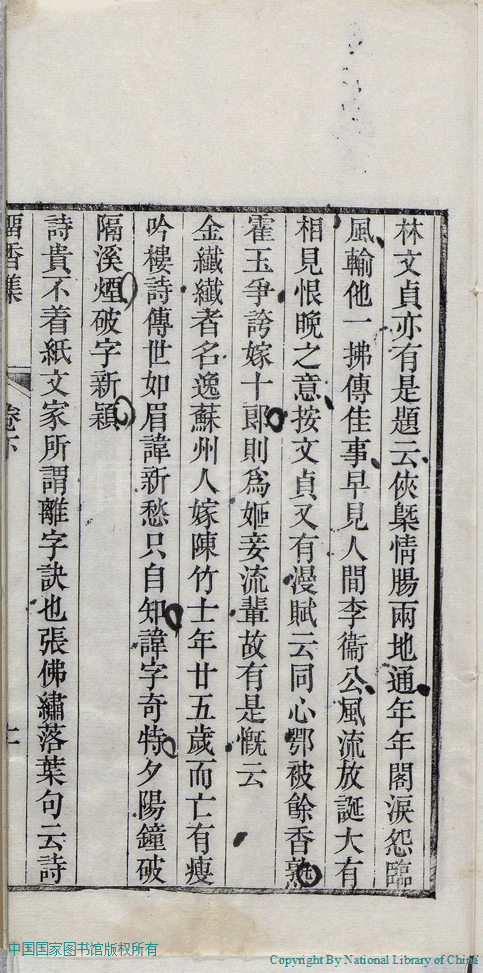 林文貞亦有是題云俠槩情腸兩地通年年閣淚怨臨
風輸他一拂傳佳事早見人間李衞公風流放誕大有
相見恨晚之意按文貞又有漫賦云同心鄂被餘香熟
霍玉爭誇嫁十郎則爲姬妾流輩故有是慨云
金纖纖者名逸蘇州人嫁陳竹士年廿五歲而亡有瘦
吟樓詩傳世如眉諱新愁只自知諱字奇特夕陽鐘破
隔溪煙破字新穎
詩貴不着紙文家所謂離字訣也張佛繡落葉句云詩
香集
卷下
中国国家图书馆版权所有
Copyright By National Library of China